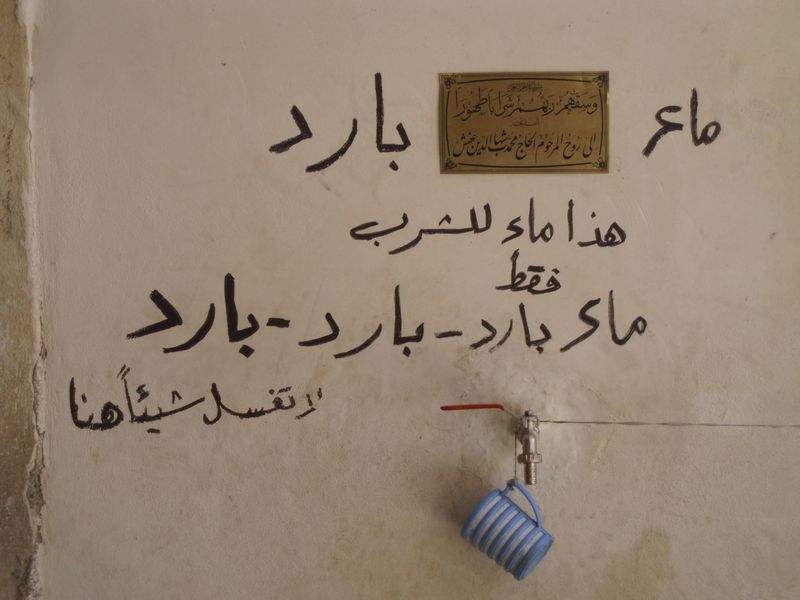 ماء بارد
وسقاهم ربهم شرابا طهورا
الى روح المرحوم الحاج محمد شهاب الدين
هذا ماء للشرب
فقط
ماء بارد - بارد - بارد
لا تغسل شيئاً هنا